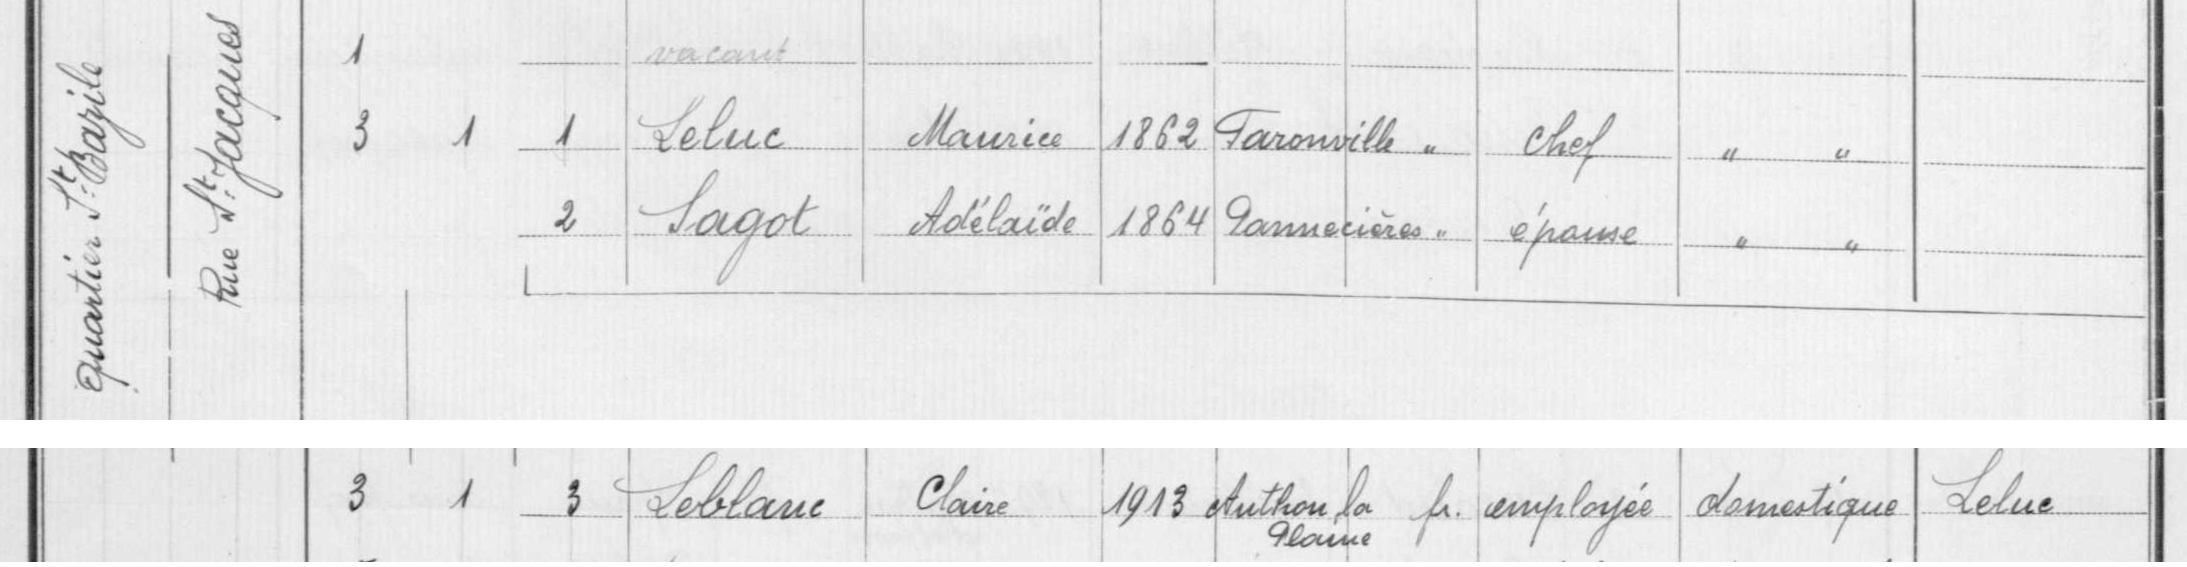 Quartier St. Bazile
Rue St. Jacques
1 vacant
3 1 1 Leluc Maurice 1862 Faronville " chef " "
2 Sagot Adélaïde 1864 Pannecières " épouse " "
3 1 3 Leblanc Claire 1913 Authon la fr. employée domestique Leluc
Plaine